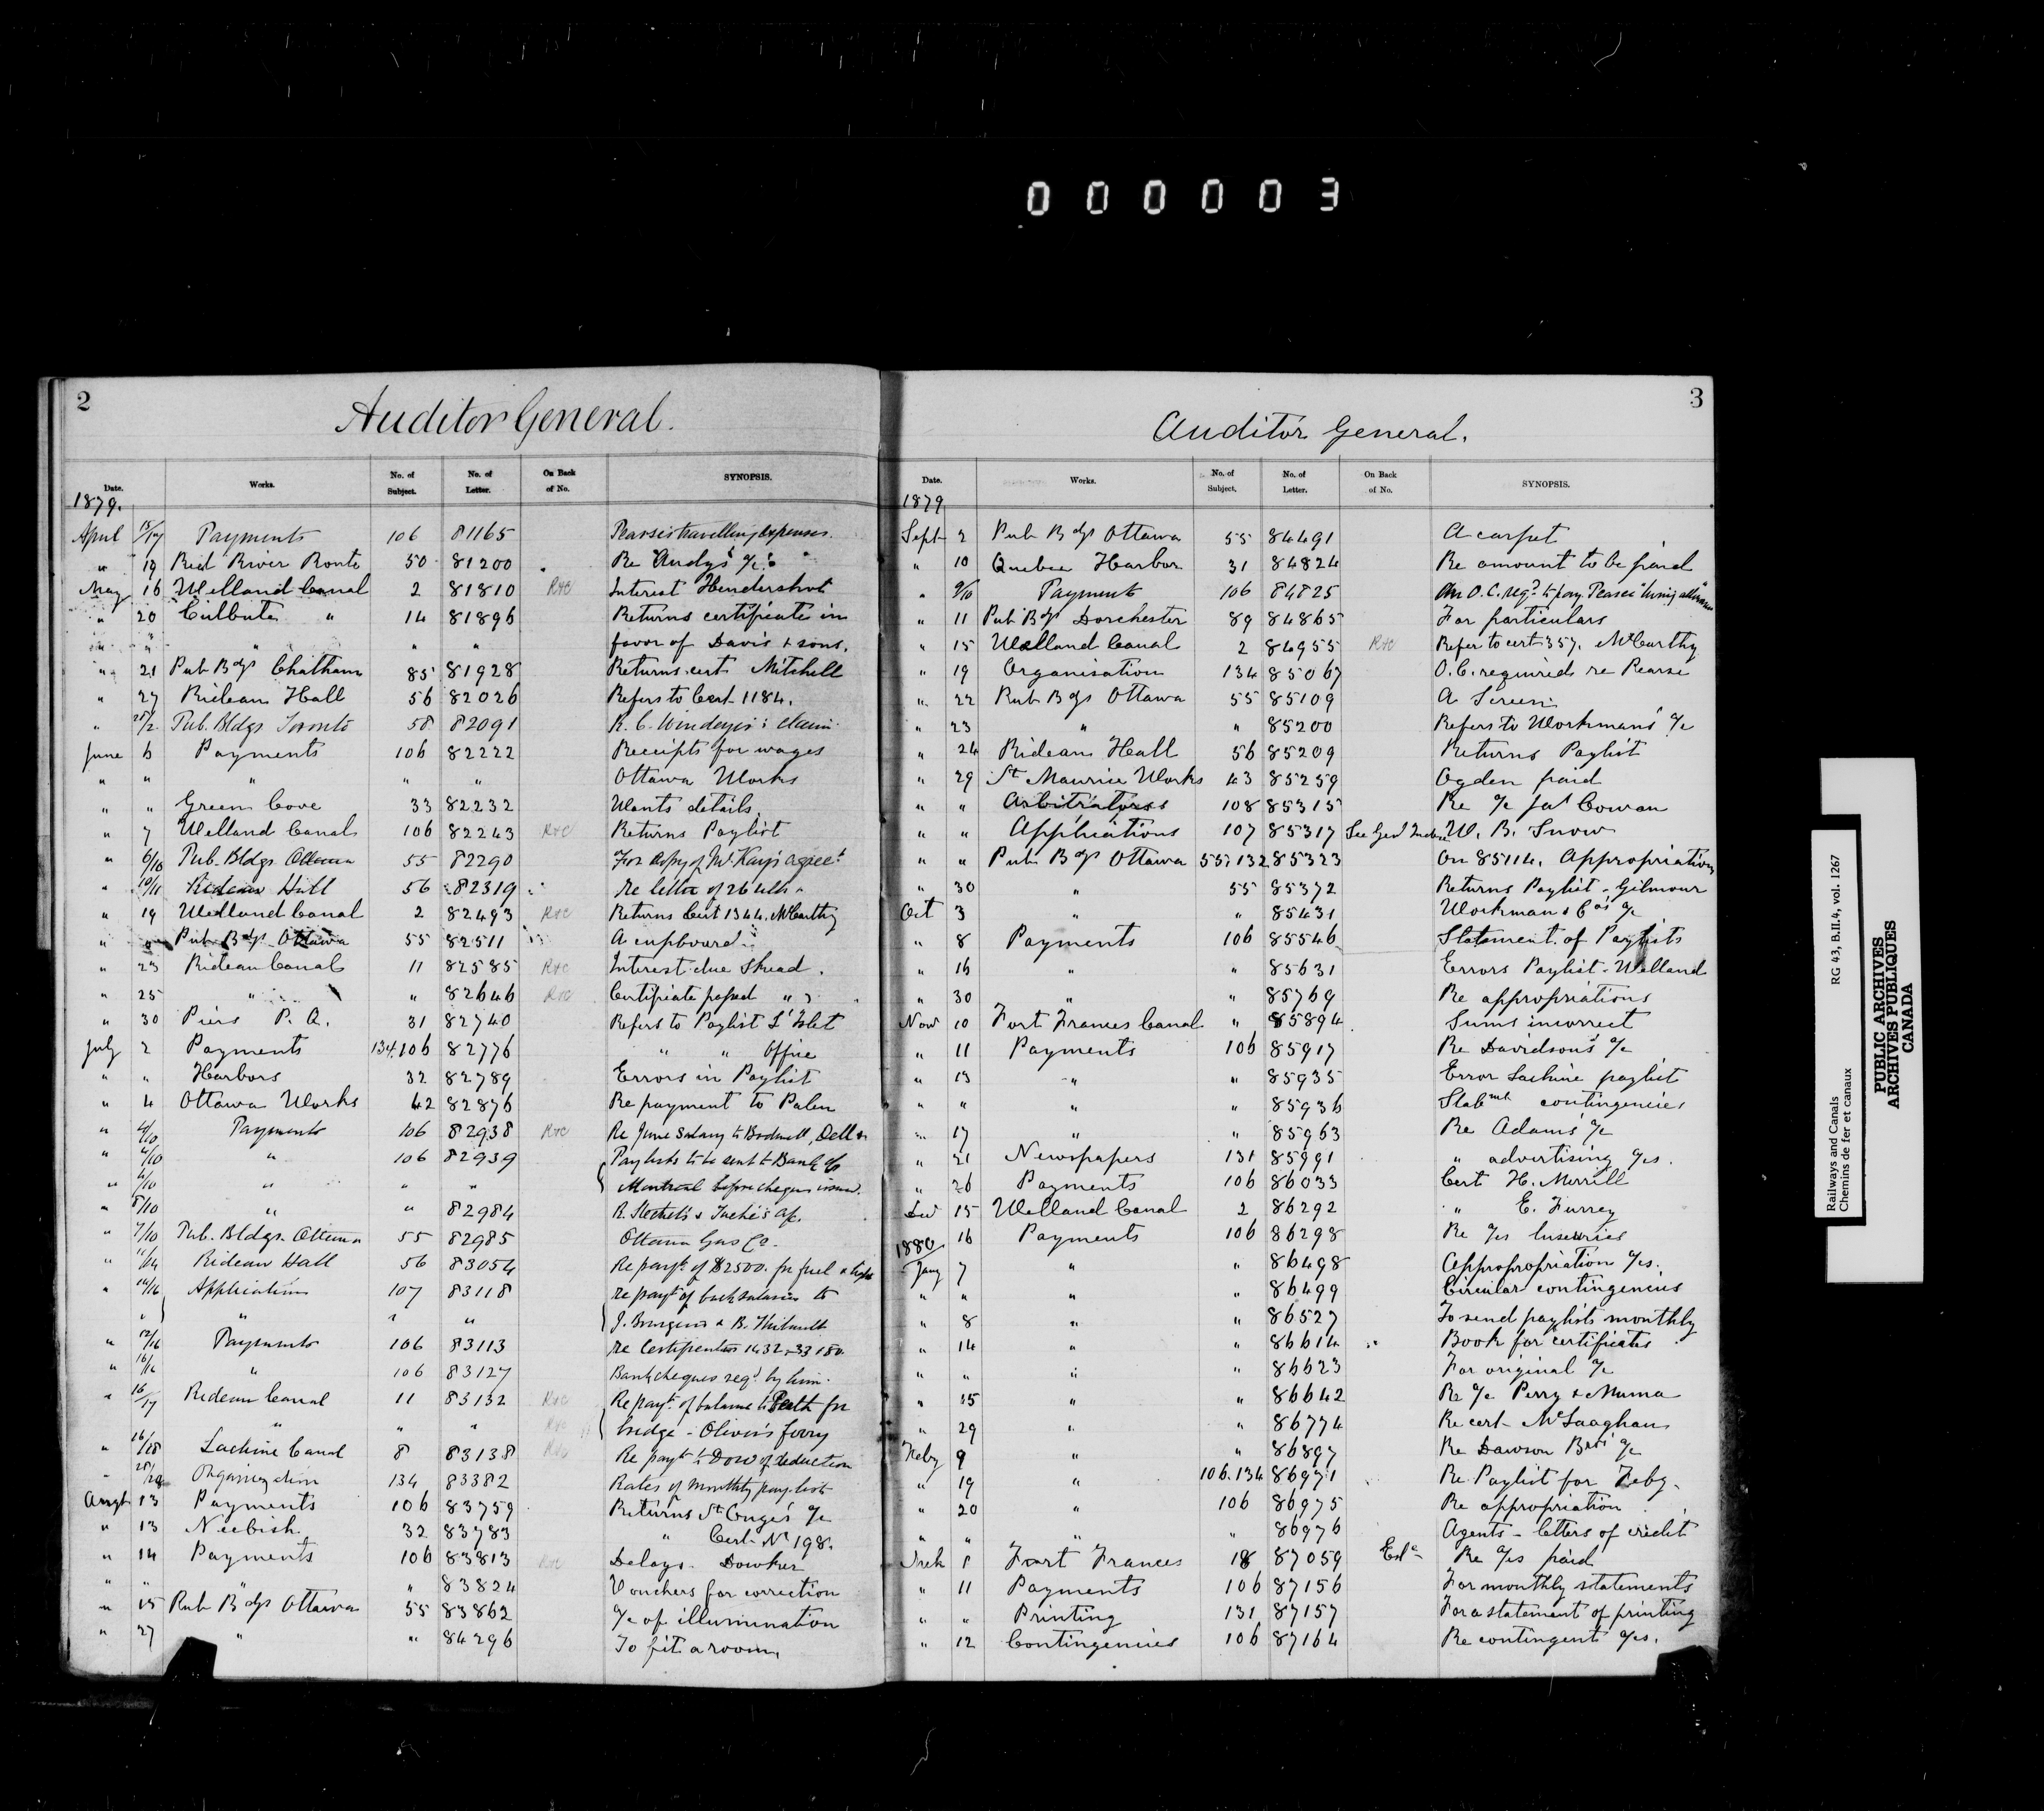 000003
2
Auditor General.
Date. Works. No. of Subject. No. of Letter. On Back of No. SYNOPSIS.
1879.
April 15/17 Payments 106 81165 travelling expenses
" 19 Red River Route 50 81200 Re Andy's a/c
May 16 Welland Canal 2 81810 R&C Interest Hendershot
" 20 Culbute " 14 81896 Returns certificate in
" " " " " favor of Davis & sons.
" 21 Pub Bdgs Chatham 85 81928 Returns cert. Mitchell
" 27 Rideau Hall 56 82026 Refers to Cert. 1184.
" Pub. Bldgs Toronto 58 82091 R. C. Windeyer's claim
June 6 Payments 106 82222 Receipts for wages
" " " " " Ottawa Works
" " Green Cove 33 82232 Wants details.
" 7 Welland Canal 106 82243 R&C Returns Paylist
" 6/10 Pub. Bldgs. Ottawa 55 82290 For Copy of McKay's agreet
" 10/11 Rideau Hall 56 82319 re letter of 26 ulto
" 19 Welland Canal 2 82493 R&C Returns Cert 1344. McCarthy
" " Pub Bdgs Ottawa 55 82511 A cupboard
" 23 Rideau Canal 11 82585 R&C Interest due Skead.
" 25 " " 82646 R&C Certificate passed "
" 30 Piers P. Q. 31 82740 Refers to Paylist L'Islet
July 2 Payments 134.106 82776 " " Office
" " Harbors 32 82789 Errors in Paylist
" 4 Ottawa Works 42 82876 Re payment to Palen
" 4/10 Payments 106 82938 R&C Re June Salary to Bodwell, Dell &
" 4/10 " 106 82939 Paylists to be sent to Bank of
" 4/10 " " " Montreal before cheques issued.
" 8/10 " " 82984 R. Steckel's & Taché's a/c.
" 7/10 Pub. Bldgs. Ottawa 55 82985 Ottawa Gas Co.
" 11/14 Rideau Hall 56 83054 Re payt. of $2500. for fuel & light
" 14/16 Application 107 83118 re payt of back salaries to
" " " " J. Bourgeois & B. Thibault
" 12/16 Payments 106 83113 re Certificates 1432
" 16/16 " 106 83127 Bank cheques reqd. by him.
" 16/17 Rideau Canal 11 83132 R&C Re payt. of balance to Perth for
" " " R&C bridge - Oliver's ferry
" 16/28 Lachine Canal 8 83138 R&C Re payt to Dow of reduction
" Organization 134 83382 Rates of monthly pay list
Augt 13 Payments 106 83759 Returns St. Onge's a/c
" 13 Neebish 32 83783 " Cert. No 198.
" 14 Payments 106 83813 R&C Delays. Dowker
" " " " 83824 Vouchers for correction
" 15 Pub Bdgs Ottawa 55 83862 a/c of illumination
" 27 " " 84296 To fit a room
3
Auditor General.
Date. Works. No. of Subject. No. of Letter. On Back of No. SYNOPSIS.
1879
Sept 2 Pub Bdgs Ottawa 55 84491 A carpet
" 10 Quebec Harbor 31 84824 Re amount to be paid
" 9/10 Payment 106 84825 An O.C. reqd. to pay Pearse living allowance
" 11 Pub Bdgs Dorchester 89 84865 For particulars
" 15 Welland Canal 2 84955 R&C Refer to cert 357. McCarthy
" 19 Organisation 134 85067 O.C. required re Pearse
" 22 Pub Bdgs Ottawa 55 85109 A Screen
" 23 " " 85200 Refers to Workman's a/c
" 24 Rideau Hall 56 85209 Returns Paylist
" 29 St Maurice Works 43 85259 Ogden paid
" " Arbitrators 108 85315 Re a/c Jas Cowan
" " Applications 107 85317 See Genl Index W. B. Snow
" " Pub Bdgs Ottawa 55,132 85323 On 85114. Appropriation
" 30 " 55 85372 Returns Paylist - Gilmour
Oct 3 " " 85431 Workman & Co's a/c
" 8 Payments 106 85546 Statement of Paylists
" 16 " " 85631 Errors Paylist - Welland
" 30 " " 85769 Re appropriations
Nov 10 Fort Frances Canal " 85894 Sums incorrect
" 11 Payments 106 85917 Re Davidson's a/c
" 13 " " 85935 Error Lachine paylist
" " " " 85936 Statemt contingencies
" 17 " " 85963 Re Adams' a/c
" 21 Newspapers 131 85991 " advertising a/cs.
" 26 Payments 106 86033 Cert H. Merrill
Dec 15 Welland Canal 2 86292 " E. Furrey
" 16 Payments 106 86298 Re a/cs luxuries
1880
Jany 7 " " 86498 Appropropriation a/cs.
" " " " 86499 Circular contingencies
" 8 " " 86527 To send paylists monthly
" 14 " " 86614 Book for certificates
" " " " 86623 For original a/c
" 15 " " 86642 Re a/c Perry & Muma
" 29 " " 86774 Re cert McLaughan
Feby 9 " " 86897 Re Dawson Bros a/c
" 19 " 106.134 86971 Re Paylist for Feby.
" 20 " 106 86975 Re appropriation
" " " " 86976 Agents - letters of credit
Mch 5 Fort Frances 18 87059 Re a/cs paid
" 11 Payments 106 87156 For monthly statements
" " Printing 131 87157 For a statement of printing
" 12 Contingencies 106 87164 Re contingent a/cs.
Railways and Canals RG 43, B.II.4, vol. 1267
Chemins de fer et canaux
PUBLIC ARCHIVES
ARCHIVES PUBLIQUES
CANADA